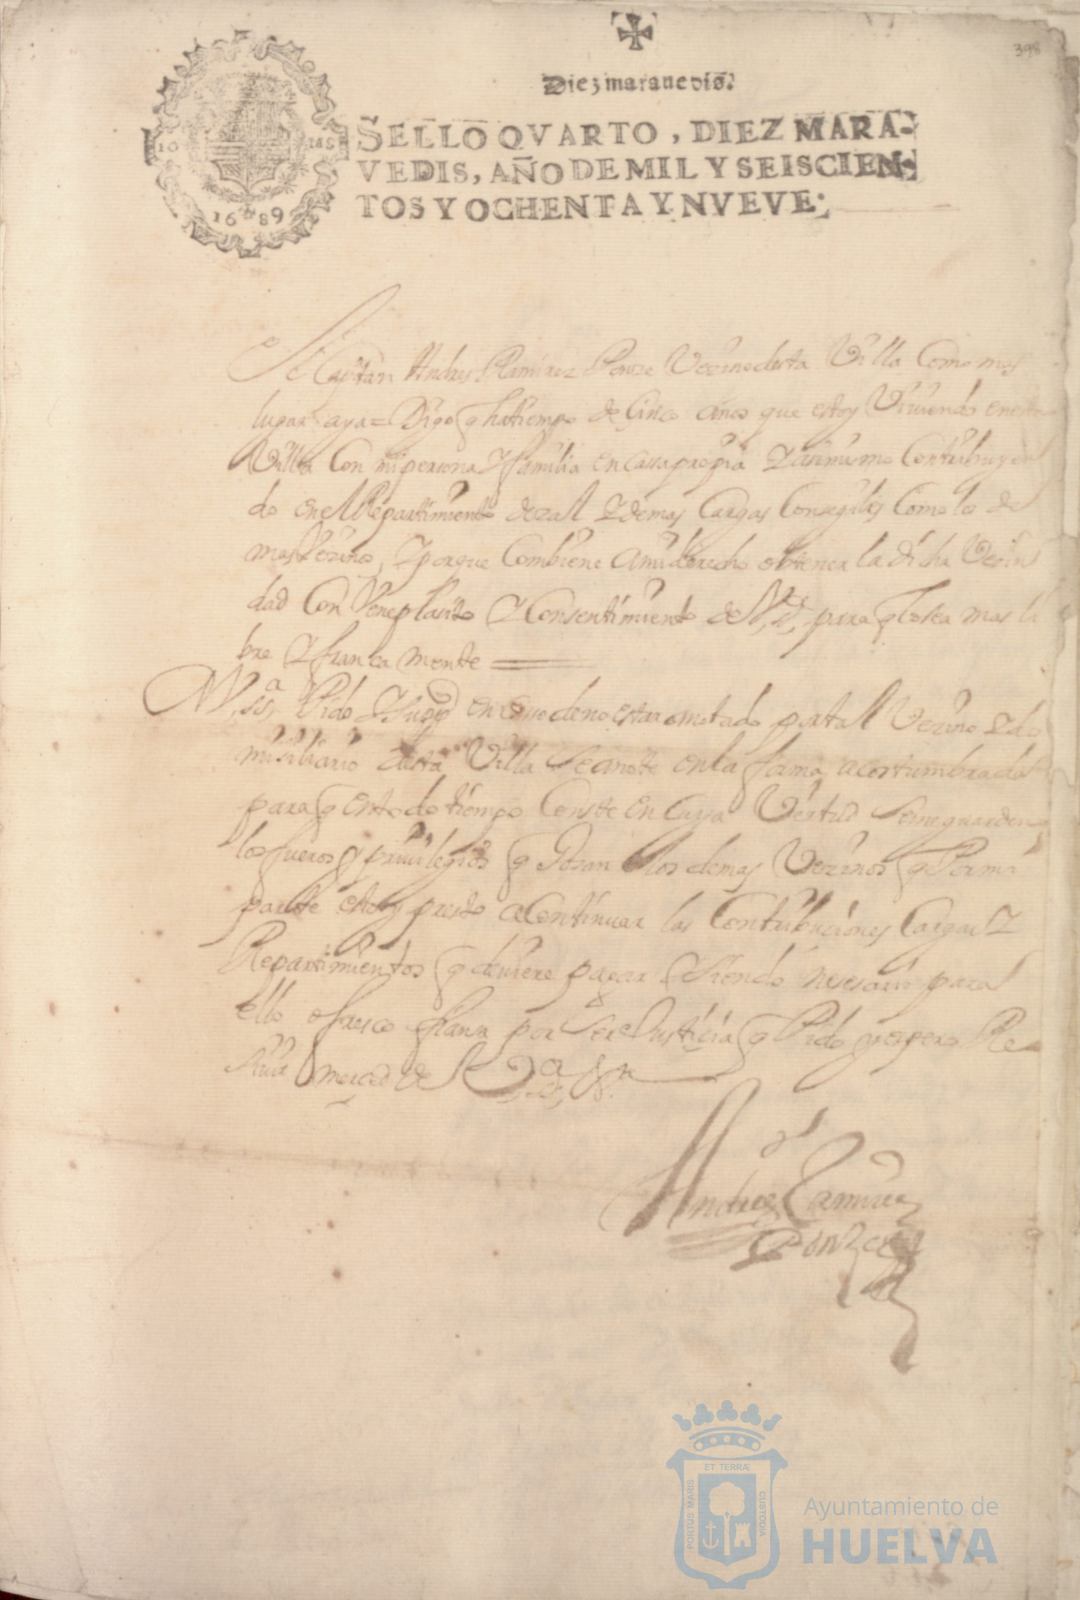 398
Diez marauedis.
SELLO QVARTO, DIEZ MARA-
VEDIS, AÑO DE MIL Y SEISCIEN-
TOS Y OCHENTA Y NVEVE.
1689
El Capitan Andres Ramirez Ponze Vezino desta Villa Como mas
lugar aya = Digo q ha tiempo de Cinco años que estoy Viviendo en esta
Villa Con mi persona Y familia en Cassa propia Y asimismo Contribuyen
do en el Repartimiento de Y demas Cargas Consegiles Como los de
mas Vezinos, Y porque Combiene a mi derecho obtener la dicha Vezin
dad Con Veneplasito Y Consentimiento de para q lo sea mas li
bre Y francamente
Pido Y Supp en Caso de no estar anotado por tal Vezino Y do
misiliario desta Villa Se anote en la forma acostumbrada
para q en todo tiempo Conste en Cuya Vertud Se me guarden
los fueros y privilegios q Gosan los demas Vezinos q Por mi
parte estoy presto a Continuar las Contribuciones Cargas Y
Repartimientos q deviere pagar Y Siendo nesesario para
ello ofresco fianza por Ser Justicia q Pido y espero Re
sivir merced de
Andres Ramirez
Ponze
PORTUS MARIS
ET TERRÆ
CUSTODIA
Ayuntamiento de
HUELVA